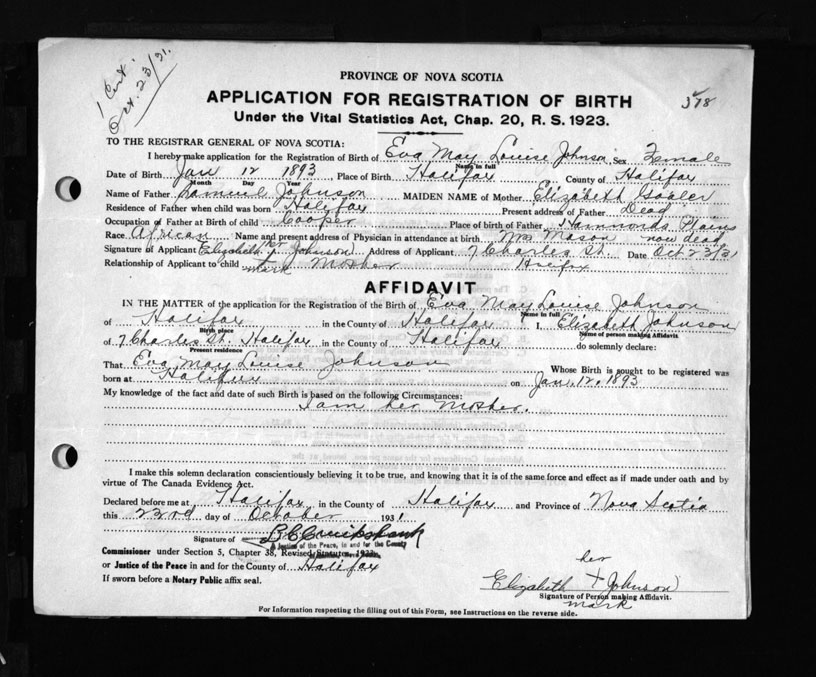 1 Cert.
Oct. 23/31.
378
PROVINCE OF NOVA SCOTIA
APPLICATION FOR REGISTRATION OF BIRTH
Under the Vital Statistics Act, Chap. 20, R. S. 1923.
TO THE REGISTRAR GENERAL OF NOVA SCOTIA:
I hereby make application for the Registration of Birth of Eva May Louise Johnson Sex Female
Name in full
Date of Birth Jan 12 1893 Place of Birth Halifax County of Halifax
Month Day Year
Name of Father Samuel Johnson MAIDEN NAME of Mother Elizabeth
Residence of Father when child was born Halifax Present address of Father Dead
Occupation of Father at Birth of child Cooper Place of birth of Father Hammonds Plains
Race African Name and present address of Physician in attendance at birth Wm Mason now dead
Signature of Applicant Elizabeth her x Johnson Address of Applicant 7 Charles St. Date Oct 23/31
Relationship of Applicant to child mark Mother Halifax
AFFIDAVIT
IN THE MATTER of the application for the Registration of the Birth of Eva May Louise Johnson
Name in full
of Halifax in the County of Halifax I, Elizabeth Johnson
Birth place Name of person making Affidavit
of 7 Charles St. Halifax in the County of Halifax do solemnly declare:
Present residence
That Eva May Louise Johnson Whose Birth is sought to be registered was
born at Halifax on Jan. 12. 1893
My knowledge of the fact and date of such Birth is based on the following Circumstances:
I am her Mother.
I make this solemn declaration conscientiously believing it to be true, and knowing that it is of the same force and effect as if made under oath and by
virtue of The Canada Evidence Act.
Declared before me at Halifax in the County of Halifax and Province of Nova Scotia
this 23rd day of October 1931
Signature of B C Cruikshank
A Justice of the Peace, in and for the County
Commissioner under Section 5, Chapter 38, Revised Statutes, 1923
or Justice of the Peace in and for the County of Halifax
If sworn before a Notary Public affix seal.
her
Elizabeth x Johnson
Signature of Person making Affidavit.
mark
For Information respecting the filling out of this Form, see Instructions on the reverse side.